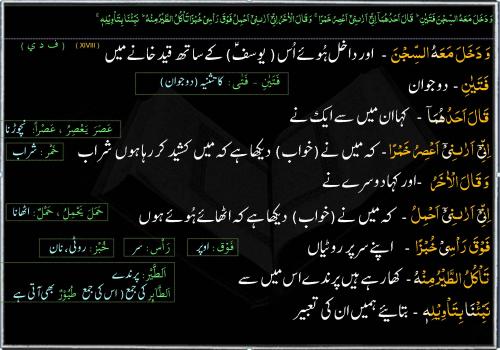 وَ دَخَلَ مَعَهُ السِّجْنَ فَتَيٰنِ ؕ قَالَ اَحَدُهُمَاۤ اِنِّيْۤ اَرٰىنِيْۤ اَعْصِرُ خَمْرًا ۚ وَ قَالَ الْاٰخَرُ اِنِّيْۤ اَرٰىنِيْۤ اَحْمِلُ فَوْقَ رَاْسِيْ خُبْزًا تَاْكُلُ الطَّيْرُ مِنْهُ ؕ نَبِّئْنَا بِتَاْوِيْلِهٖ ۚ
وَ دَخَلَ مَعَهُ السِّجْنَ - اور داخل ہُوئے اُس ( یوسفؑ ) کے ساتھ قید خانے میں (XVIII) ( ف ت ي )
فَتَيٰنِ - دو جوان فَتَيٰنِ - فَتًى : کا تثنیہ (دو جوان)
قَالَ اَحَدُهُمَاۤ - کہا ان میں سے ایک نے عَصَرَ يَعْصِرُ ، عَصْرًا : نچوڑنا
اِنِّيْۤ اَرٰىنِيْۤ اَعْصِرُ خَمْرًا - کہ میں نے (خواب) دیکھا ہے کہ میں کشید کر رہا ہوں شراب خَمْرٌ : شراب
وَ قَالَ الْاٰخَرُ - اور کہا دوسرے نے
اِنِّيْۤ اَرٰىنِيْۤ اَحْمِلُ - کہ میں نے (خواب) دیکھا ہے کہ اٹھائے ہُوئے ہوں حَمَلَ يَحْمِلُ ، حَمْلٌ : اٹھانا
فَوْقَ رَاْسِيْ خُبْزًا - اپنے سر پر روٹیاں فَوْقَ : اوپر رَاْس : سر خُبْزٌ : روٹی، نان
تَاْكُلُ الطَّيْرُ مِنْهُ - کھا رہے ہیں پرندے اس میں سے اَلطَّيْرُ : پرندے
نَبِّئْنَا بِتَاْوِيْلِهٖ - بتائیے ہمیں ان کی تعبیر اَلطَّاْئِرُ کی جمع ( اس کی جمع طُيُوْرٌ بھی آتی ہے